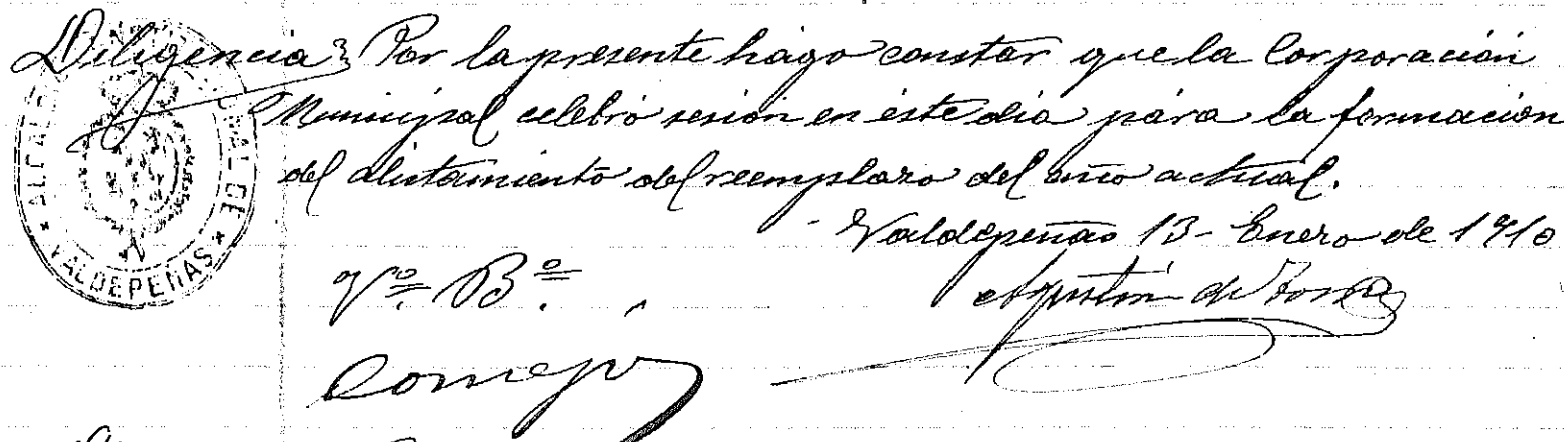 Diligencia} Por la presente hago constar que la Corporación
Municipal celebró sesión en éste dia pára la formación
del alistamiento del reemplazo del año actual.
Valdepeñas 13 - Enero de 1910
Vº. Bº.
Agustín de
Cornejo
VALDEPEÑAS